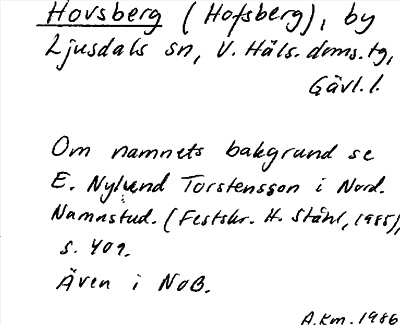 Hovsberg (Hofsberg), by
Ljusdals sn, V. Häls. dms.tg,
Gävl. l.
Om namnets bakgrund se
E. Nylund Torstensson i Nord.
Namnstud. (Festskr. H. Ståhl, 1985),
s. 409.
Även i NoB.
A.Km. 1986